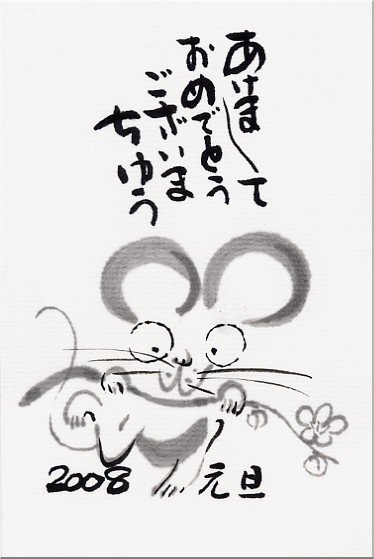 あけまして
おめでとう
ございま
ちゅう
2008 元旦